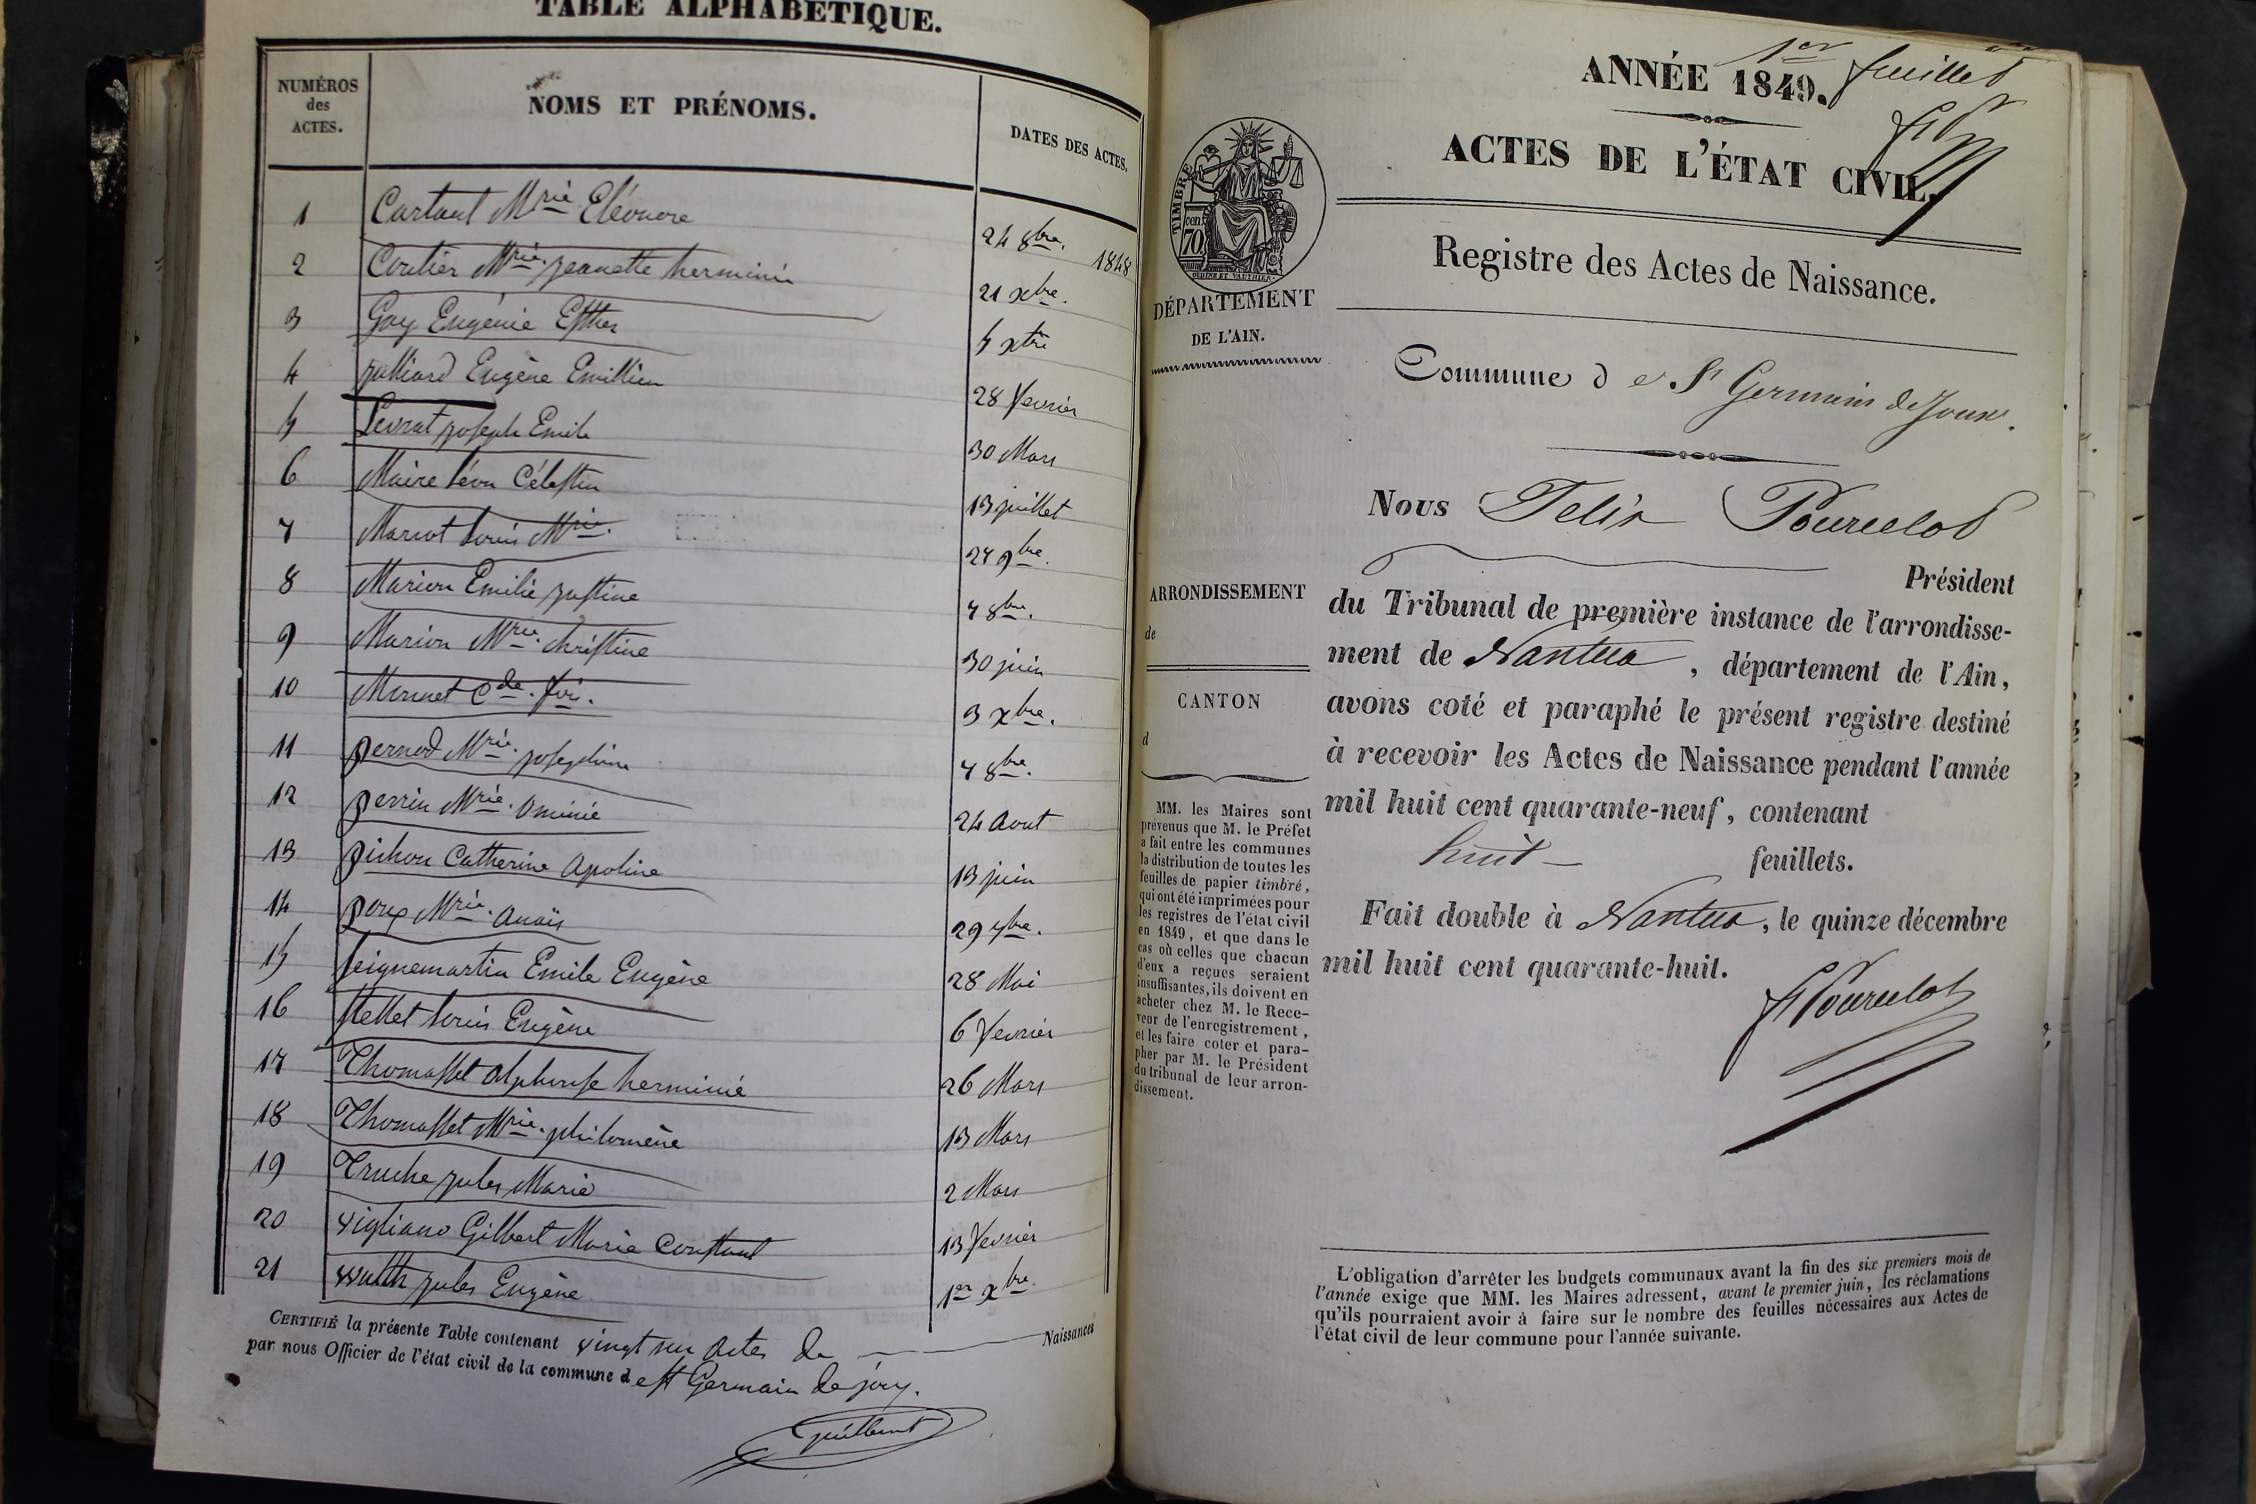 TABLE ALPHABÉTIQUE.
NUMÉROS des ACTES.
NOMS ET PRÉNOMS.
DATES DES ACTES.
1 Cartaut Mrie Eléonore 24 8bre. 1848
2 Coutier Mrie Jeanette herminie 21 xbre.
3 Gay Eugénie Esther 5 xbre
4 Julliard Eugène Emillien 28 fevrier
5 Levrat joseph Emile 30 Mars
6 Maire Léon Célestin 13 juillet
7 Mariot Louis Mrie. 27 9bre.
8 Marion Emilie justine 7 8bre.
9 Marion Mrie. christine 30 juin
10 Monnet Cde. fois. 3 xbre.
11 pernod Mrie. josephine 7 8bre.
12 perrin Mrie. Ominie 24 Aout
13 pichon Catherine Apoline 13 juin
14 poux Mrie. Anaïs 29 7bre.
15 seignemartin Emile Eugène 28 Mai
16 Mettet Louis Eugène 6 fevrier
17 Thomasset Alphonse herminie 26 Mars
18 Thomasset Mrie. philomène 13 Mars
19 Truche jules Marie 2 Mars
20 Vigliano Gilbert Marie Constant 13 fevrier
21 Wulth jules Eugène 1er xbre.
CERTIFIÉ la présente Table contenant vingt un actes de Naissances
par nous Officier de l'état civil de la commune d e St Germain de joux.
Guilland
1er feuillet
ANNÉE 1849.
ACTES DE L'ÉTAT CIVIL.
Registre des Actes de Naissance.
TIMBRE
cen
70
OUDINE ET VAUTHIER
DÉPARTEMENT
DE L'AIN.
Commune d e St Germain de Joux.
Nous Felix Pourcelot
Président
du Tribunal de première instance de l'arrondisse-
ment de Nantua, département de l'Ain,
avons coté et paraphé le présent registre destiné
à recevoir les Actes de Naissance pendant l'année
mil huit cent quarante-neuf, contenant
huit feuillets.
Fait double à Nantua, le quinze décembre
mil huit cent quarante-huit.
F Pourcelot
ARRONDISSEMENT
de
CANTON
d
MM. les Maires sont
prévenus que M. le Préfet
a fait entre les communes
la distribution de toutes les
feuilles de papier timbré,
qui ont été imprimées pour
les registres de l'état civil
en 1849, et que dans le
cas où celles que chacun
d'eux a reçues seraient
insuffisantes, ils doivent en
acheter chez M. le Rece-
veur de l'enregistrement,
et les faire coter et para-
pher par M. le Président
du tribunal de leur arron-
dissement.
L'obligation d'arrêter les budgets communaux avant la fin des six premiers mois de
l'année exige que MM. les Maires adressent, avant le premier juin, les réclamations
qu'ils pourraient avoir à faire sur le nombre des feuilles nécessaires aux Actes de
l'état civil de leur commune pour l'année suivante.